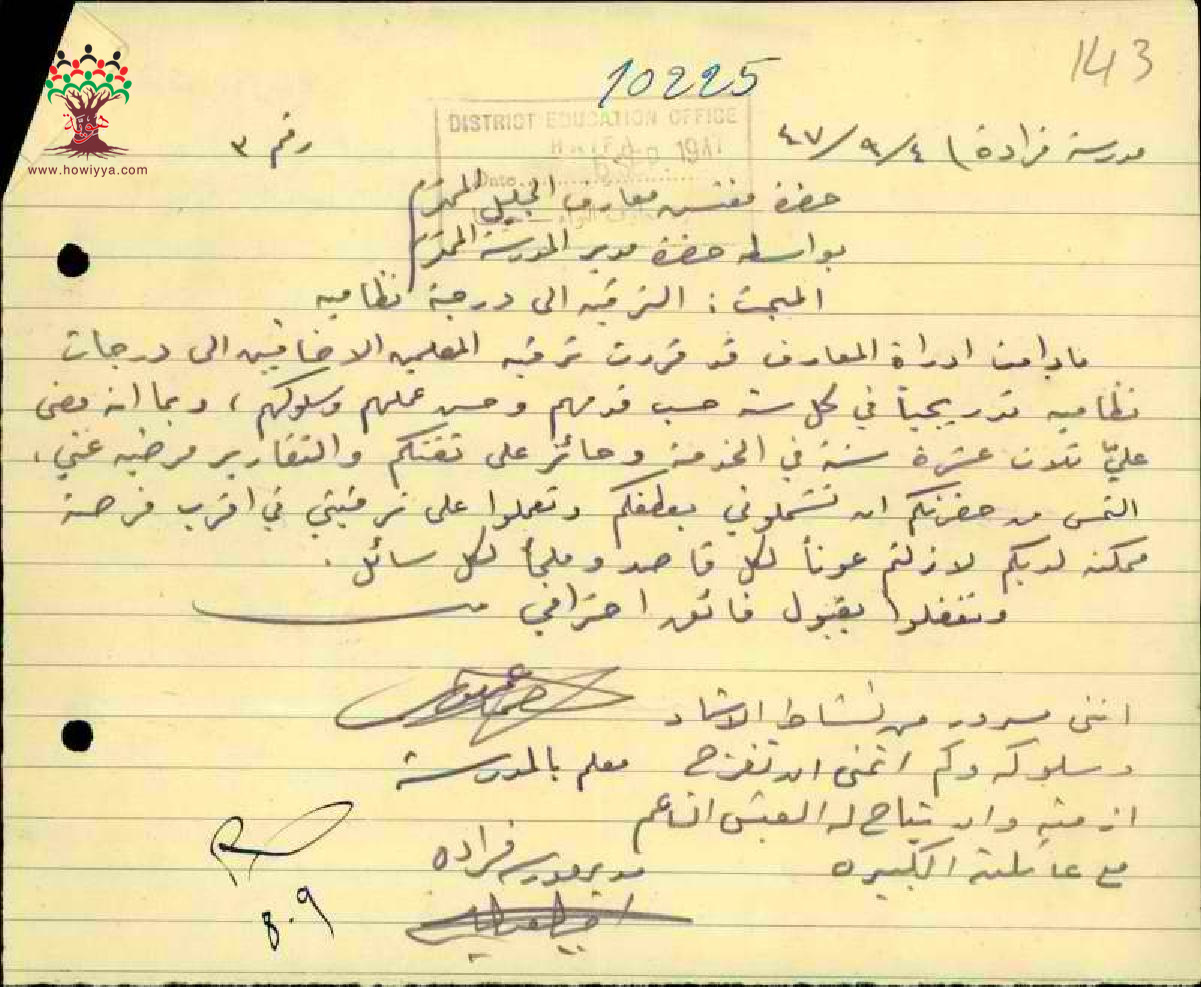 143
10225
DISTRICT EDUCATION OFFICE
HAIFA
1947
Date
هوية
www.howiyya.com
مدرسة فرادة) ٤/٩/٤٧
رقم ٣
حضرة مفتش معارف الجليل المحترم
بواسطة حضرة مدير المدرسة المحترم
المبحث: الترقيه الى درجة نظاميه
مادامت ادراة المعارف قد قررت ترقيه المعلمين الاضافيين الى درجات
نظاميه تدريجياً في كل سنة حسب قدمهم وحسن عملهم وسلوكهم، وبما انه مضى
عليّ ثلاث عشرة سنة في الخدمة وحائز على ثقتكم والتقارير مرضيه عني،
التمس من حضرتكم ان تشملوني بعطفكم وتعملوا على ترقيتي في اقرب فرصة
ممكنه لديكم لازلتم عوناً لكل قاصد وملجأ لكل سائل.
وتفضلوا بقبول فائق احترامي
انني مسرور من نشاط الاستاذ
وسلوكه وكم اتمنى ان تفرج
معلم بالمدرسة
ازمته وان يتاح له العيش الناعم
مع عائلته الكبيره
مدير مدرسة فراده
8.9